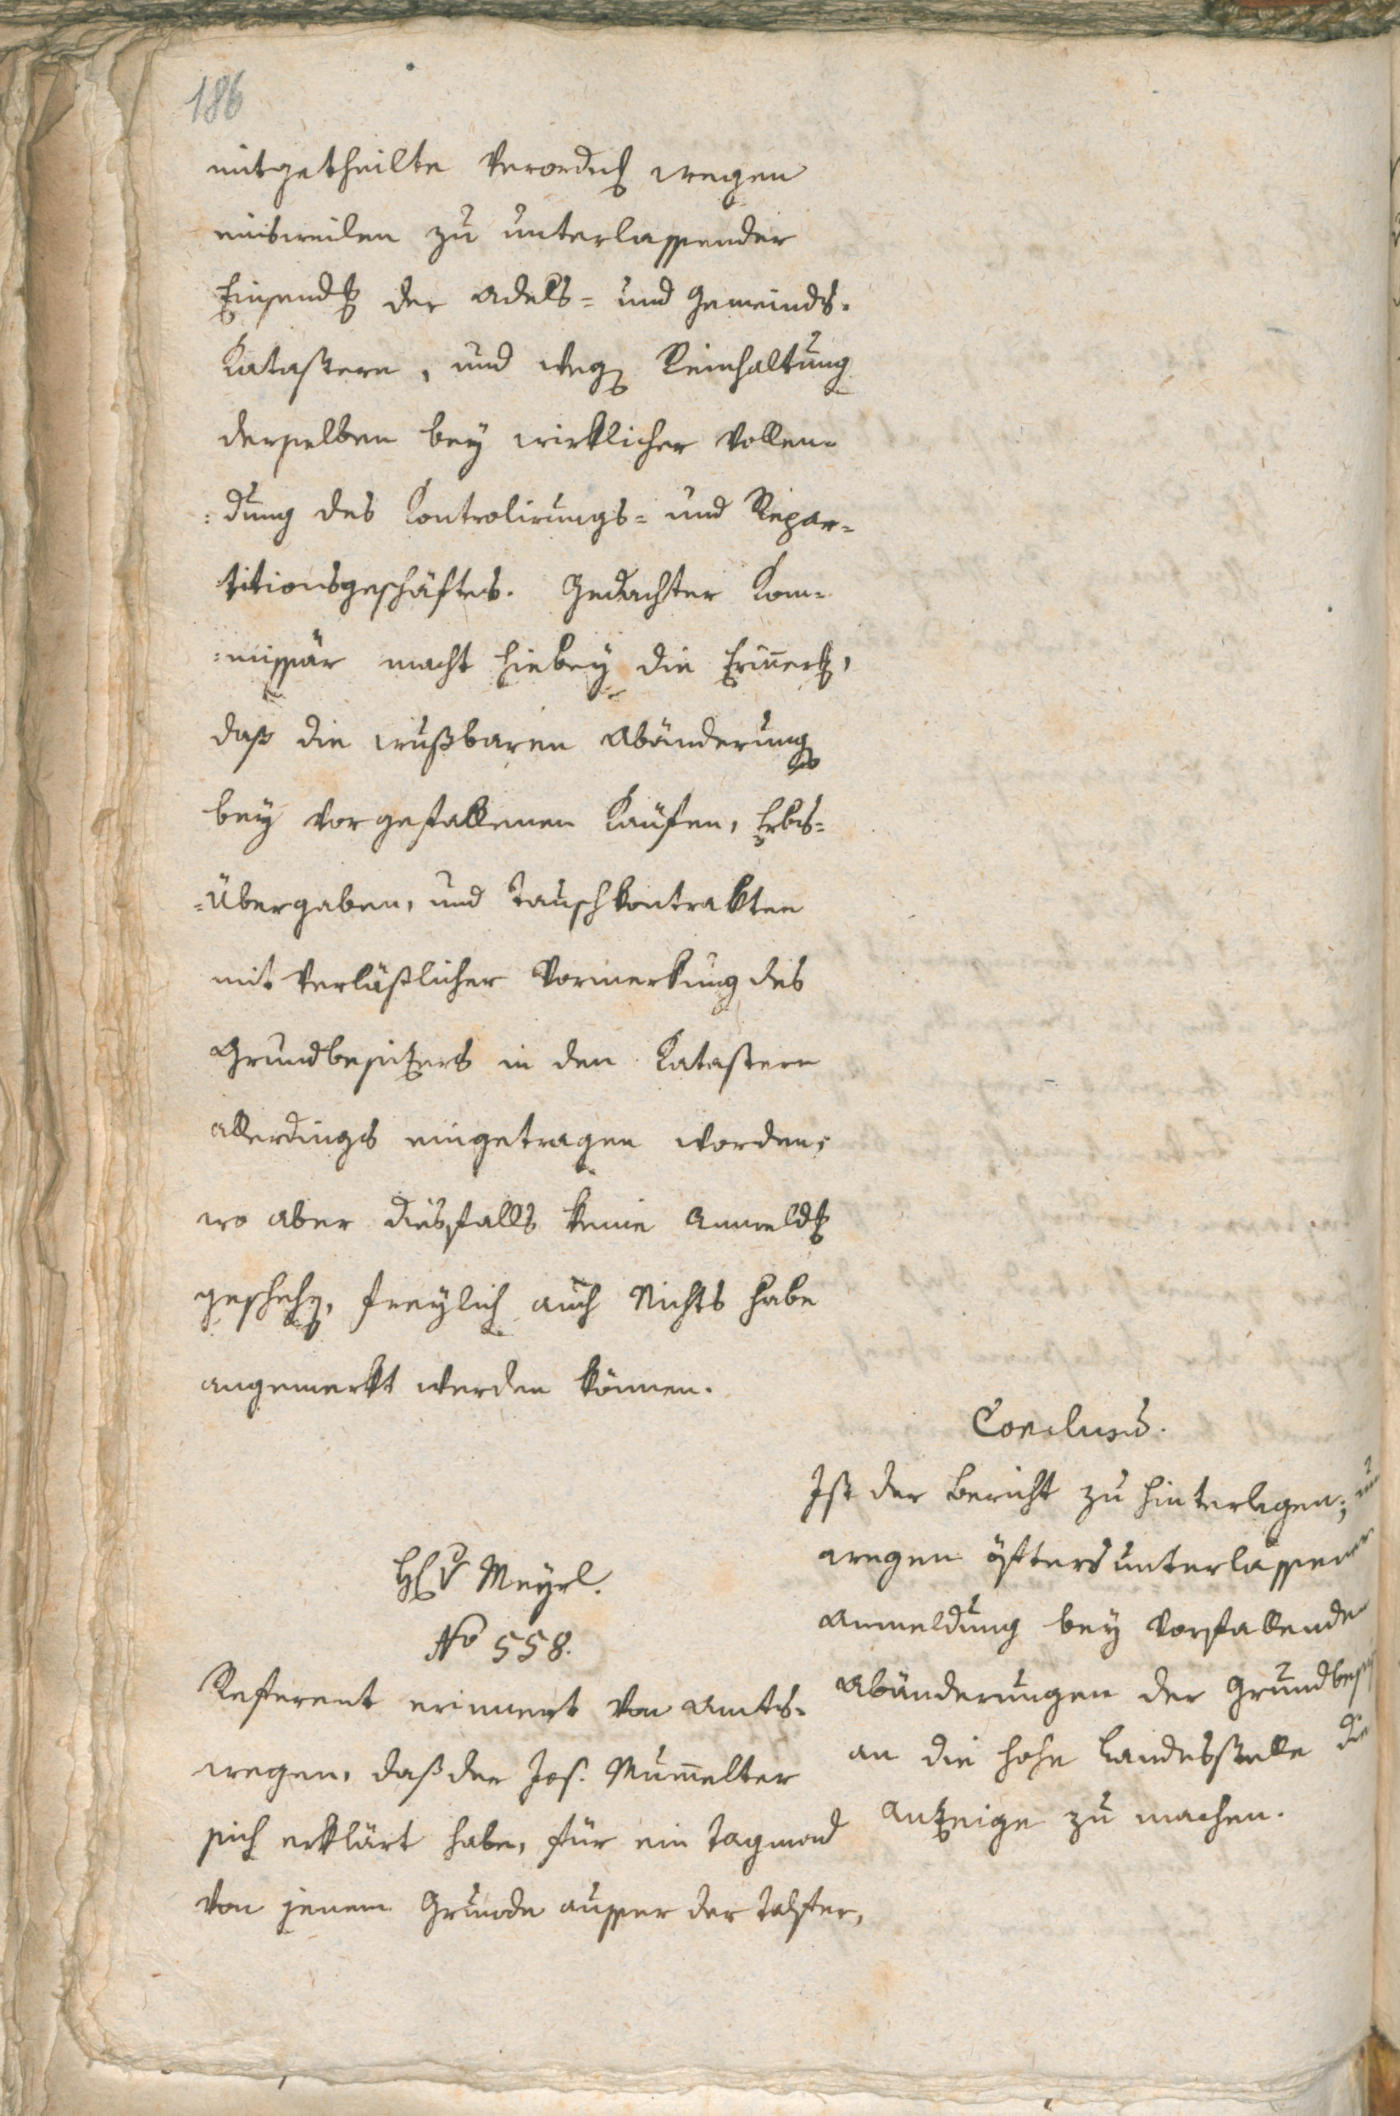 186
mitgetheilte Verordng wegen
einsweilen zu unterlassender
Einsendg der Adels= und Gemeinds-
Katastern, und wegen Reinhaltung
derselben bey wirklicher Vollen-
:dung des Controlirungs= und Repar-
titionsgeschäftes. Gedachter Kom-
:missär macht hiebey die Erinnerg,
daß die wußbaren Abänderung
bey vorgefallenen Käufen, Erbs-
=Übergaben, und Tauschkontrakten
mit verläßlicher Vormerkung des
Grundbesitzers in den Katastern
allerdings eingetragen worden,
wo aber diesfalls keine Anmeldg
geschehen, freylich auch Nichts habe
angemerkt werden können.
Conclusum.
Ist der Bericht zu hinterlegen;
wegen öfters unterlassener
Anmeldung bey vorfallenden
Abänderungen der Grundbes
an die hohe Landesstelle die
Anzeige zu machen.
H v Meyrl.
No 558.
Referent erinnert von Amts-
wegen, daß der Jos. Mumelter
sich erklärt habe, für ein Tagmad
von jenem Grunde ausser der Talfer,